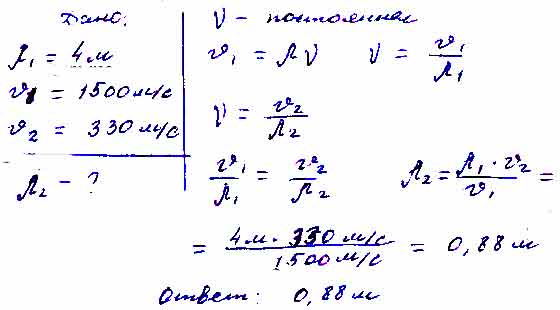 Дано:
λ₁ = 4 м
v₁ = 1500 м/с
v₂ = 330 м/с
λ₂ - ?
ν - постоянная
v₁ = λν   ν = v₁/λ₁
ν = v₂/λ₂
v₁/λ₁ = v₂/λ₂   λ₂ = λ₁ · v₂/v₁ =
= 4 м · 330 м/с / 1500 м/с = 0,88 м
Ответ: 0,88 м